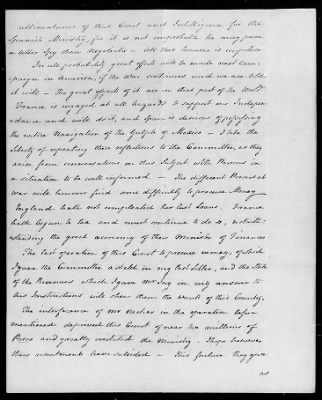 ultimatum of that Court and Intelligence for the
Spanish Ministry, for it is not improbable he may prove
a better Spy than Negotiator – All this however is conjecture
In all probability great efforts will be made next Cam-
paign in America, if the War continues and we are told
it will – The great objects of it are in that part of the World
France is engaged at all hazards to support our Indepen-
dance and will do it, and Spain is desirous of possessing
the entire Navigation of the Gulph of Mexico – I take the
Liberty of repeating these reflections to the Committee, as they
arise from conversations on this Subject with Persons in
a situation to be well informed – The different Powers at
war will however find some difficulty to procure Money –
England hath not compleated her last Loan. France
hath begun to tax and must continue to do so, notwith-
standing the great œconomy of their Minister of Finances
The last operation of this Court to procure money, of which
I gave the Committee a sketch in my last Letter, and the state
of the Revenues which I gave Mr Jay in my answer to
his Instructions will shew them the wants of this Country.
The interference of Mr Necker in the operation before
mentioned deprived this Court of near two millions of
Pesos and greatly irritated the Ministry – I hope however
their resentments have subsided – This failure they give
as